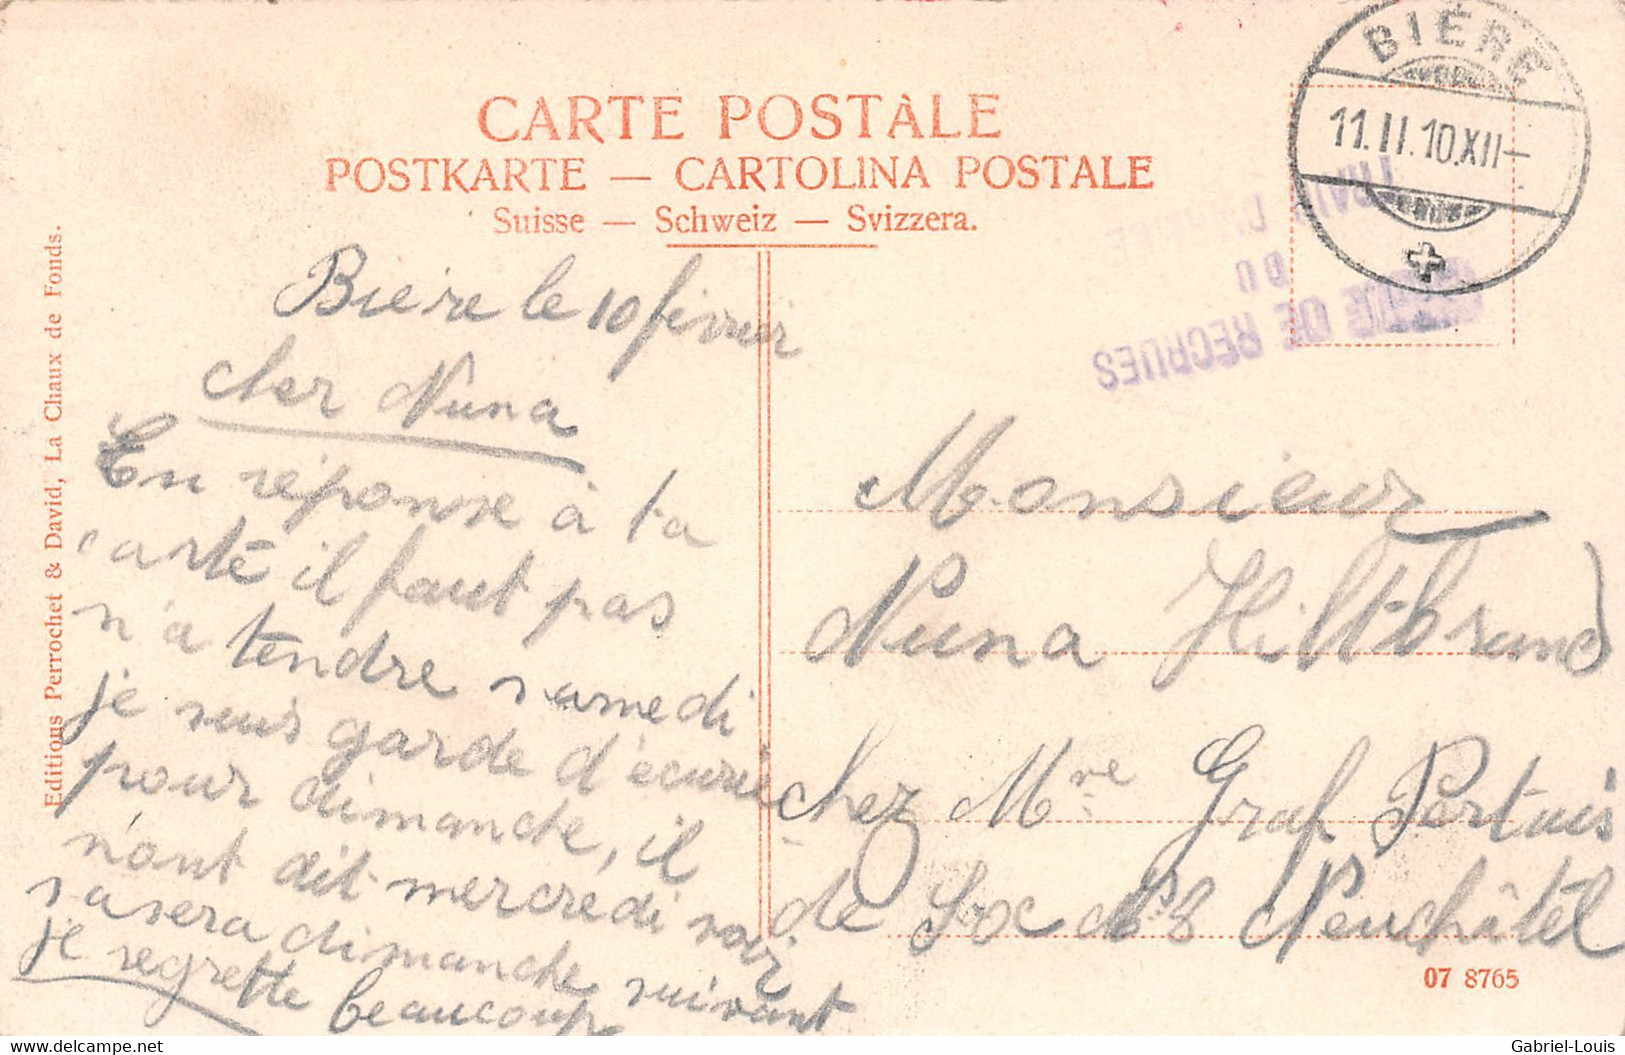 CARTE POSTÀLE
POSTKARTE — CARTOLINA POSTALE
Suisse — Schweiz — Svizzera.
BIÈRE
11.II.10.XII–
DU
DE RECRUES
Editions Perrochet & David, La Chaux de Fonds.
Bière le 10 février
cher Nuna
En réponse à ta
carte il faut pas
n'a tendre samedi
je suis garde d'écurie
pour dimanche, il
n'ont dit mercredi soir
sa sera dimanche suivant
je regrette beaucoup
Monsieur
Nuna Hiltbrand
chez Mre Graf Pertuis
de Soc No 8 Neuchâtel
07 8765
delcampe.net
Gabriel-Louis